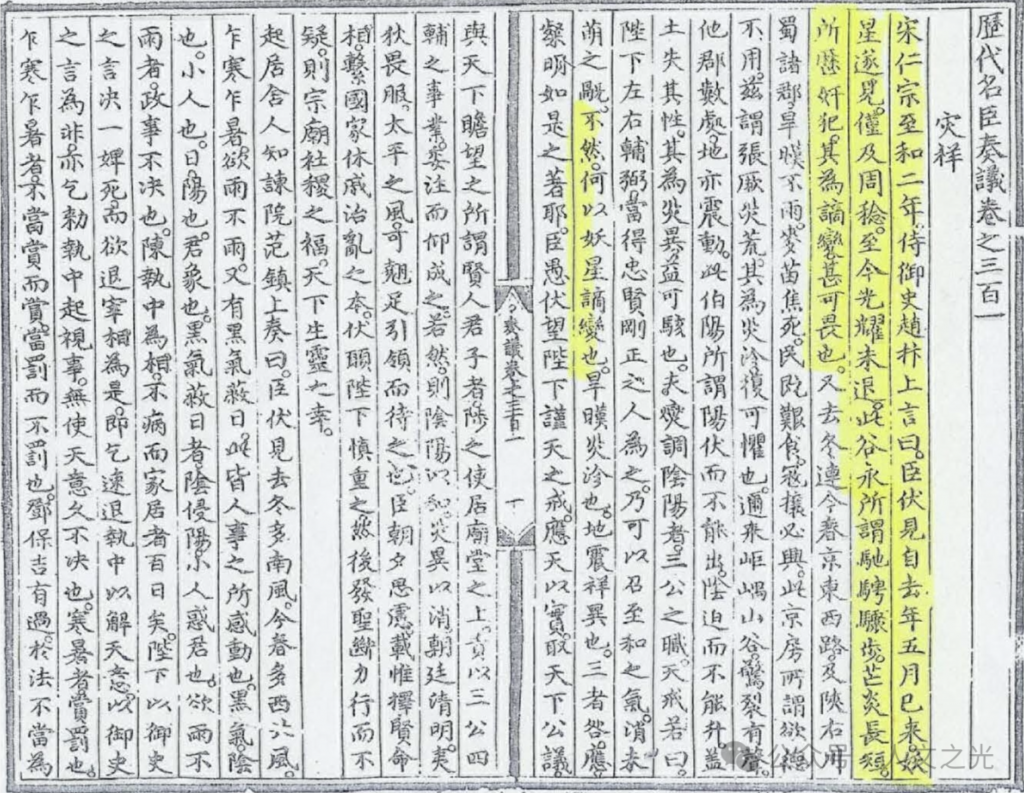 歷代名臣奏議卷之三百一
災祥
宋仁宗至和二年侍御史趙抃上言曰臣伏見自去年五月已來妖
星遂見僅及周稔至今光耀未退此谷永所謂馳騁驟步芒炎長短
所歷奸犯其為謫變甚可畏也又去冬連今春京東西路及陝右川
蜀諸郡旱暵不雨麥苗焦死民既艱食寇攘必興此京房所謂欲德
不用茲謂張厥災荒其為災沴復可懼也邇來岠嵎山谷驚裂有聲
他郡數處地亦震動此伯陽所謂陽伏而不能出陰迫而不能升蓋
土失其性其為災異益可駭也夫燮調陰陽者三公之職天戒若曰
陛下左右輔弼當得忠賢剛正之人為之乃可以召至和之氣消未
萌之眚不然何以妖星謫變也旱暵災沴也地震祥異也三者咎應
粲明如是之著耶臣愚伏望陛下謹天之戒應天以實取天下公議
奏議卷之三百一
一
與天下瞻望之所謂賢人君子者陟之使居廟堂之上責以三公四
輔之事業委注而仰成之若然則陰陽以和災異以消朝廷清明夷
狄畏服太平之風可翹足引領而待之也臣朝夕思慮載惟擇賢命
相繫國家休戚治亂之本伏願陛下慎重之然後發聖斷力行而不
疑則宗廟社稷之福天下生靈之幸
起居舍人知諫院范鎮上奏曰臣伏見去冬多南風今春多西北風
乍寒乍暑欲雨不雨又有黑氣蔽日此皆人事之所感動也黑氣陰
也小人也日陽也君象也黑氣蔽日者陰侵陽小人惑君也欲雨不
雨者政事不決也陳執中為相不病而家居者百日矣陛下以御史
之言決一婢死而欲退宰相為是即乞速退執中以解天意以御史
之言為非亦乞勑執中起視事無使天意久不決也寒暑者賞罰也
乍寒乍暑者不當賞而賞當罰而不罰也鄧保吉有過於法不當為
公众号·人文之光